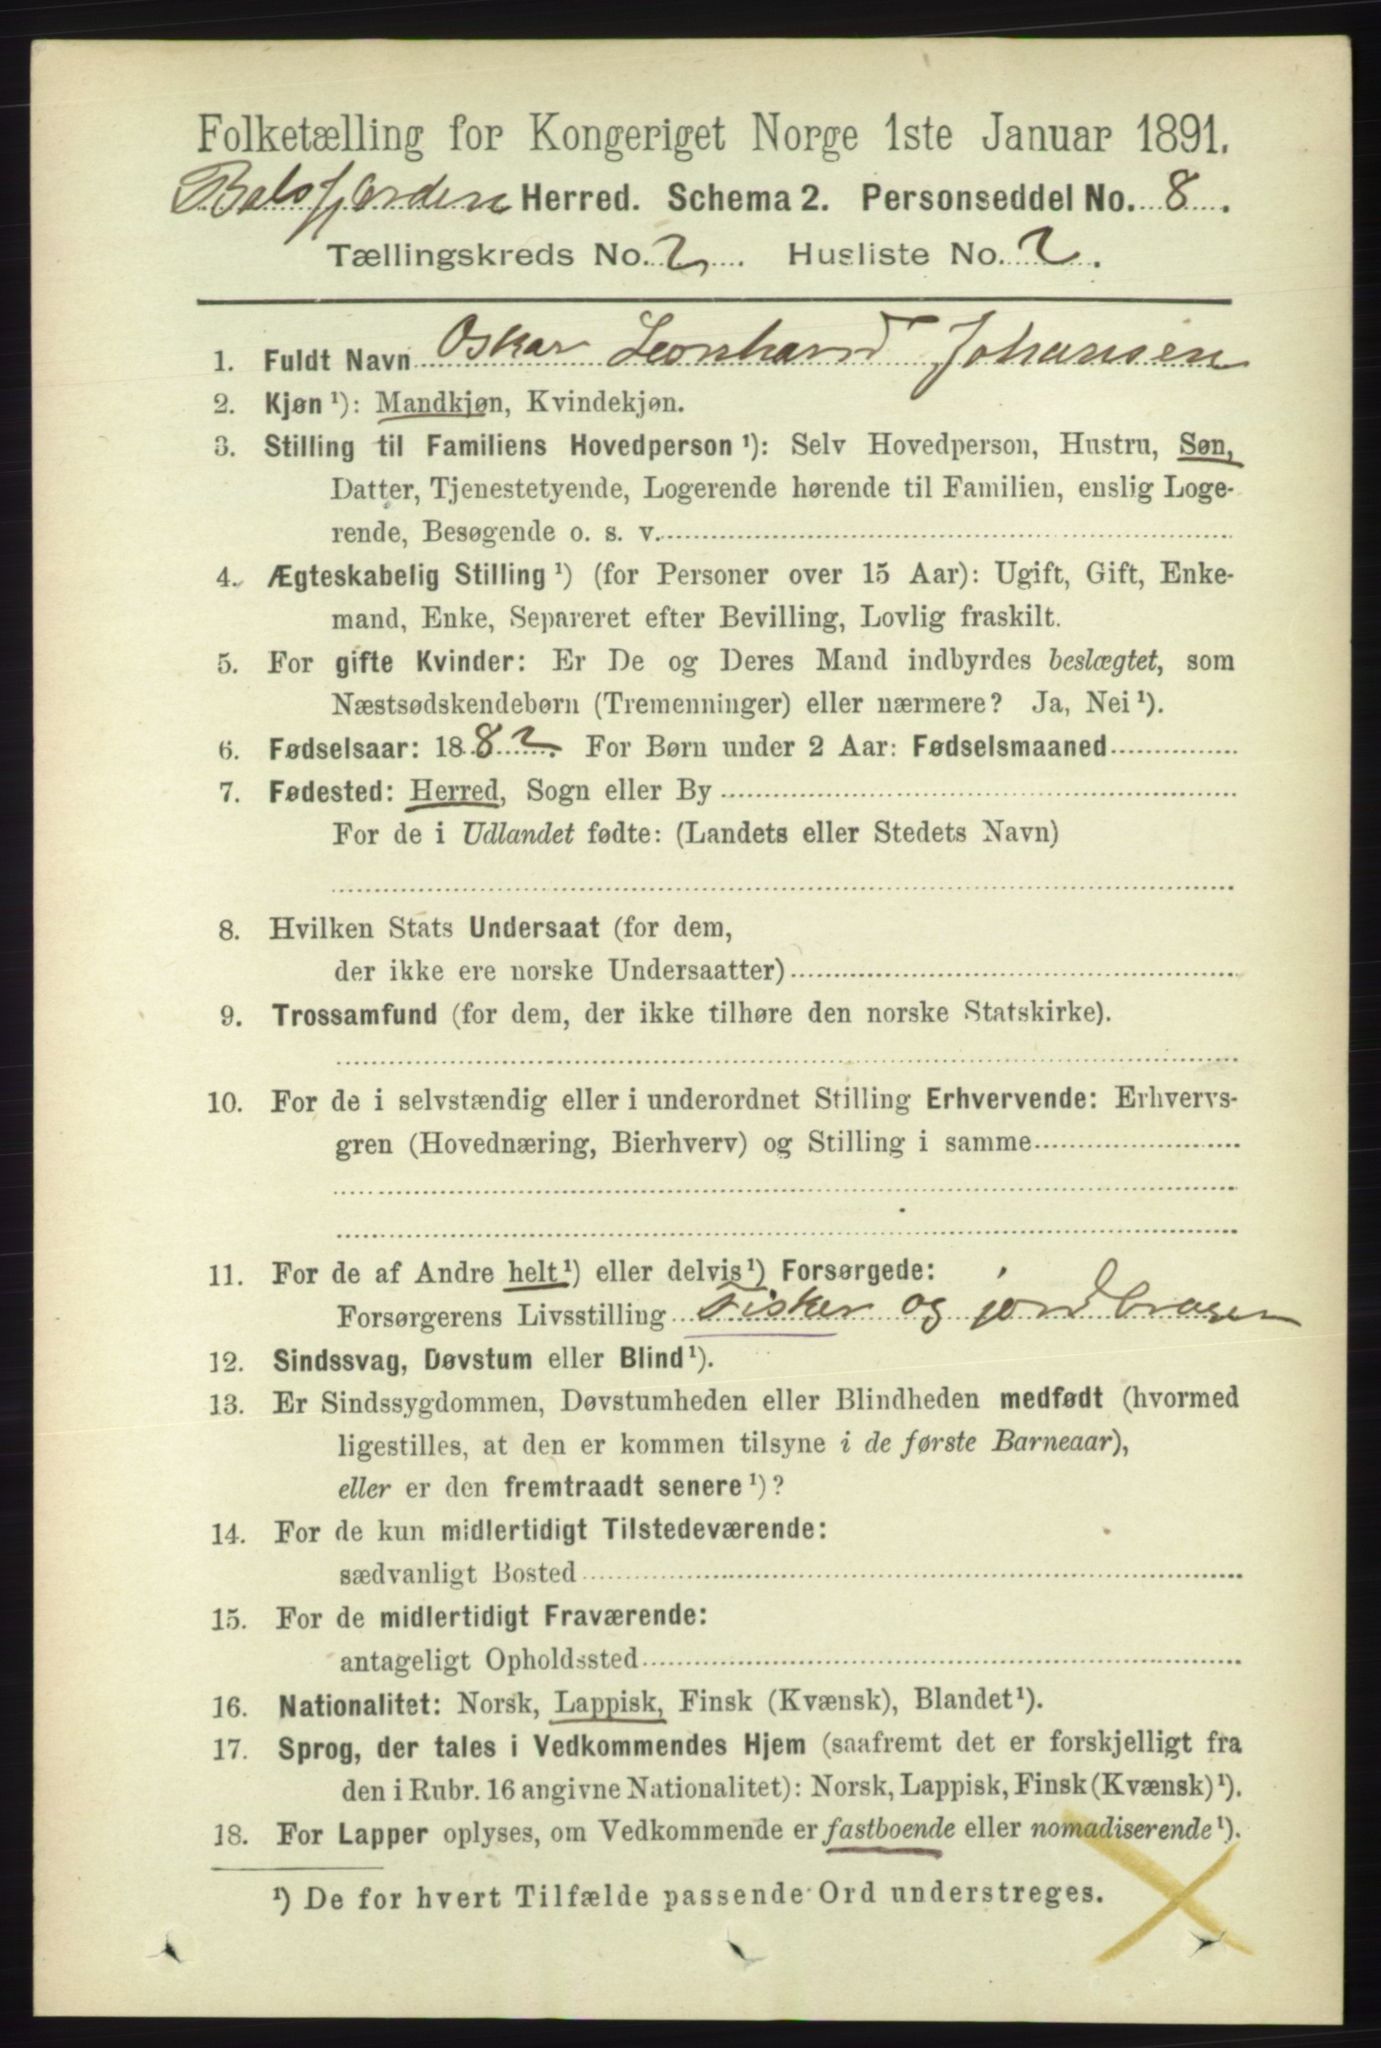 Folketælling for Kongeriget Norge 1ste Januar 1891.
Balsfjorden Herred. Schema 2. Personseddel No. 8.
Tællingskreds No. 2. Husliste No. 2.
1. Fuldt Navn Oskar Leonhard Johansen
2. Kjøn ¹): Mandkjøn, Kvindekjøn.
3. Stilling til Familiens Hovedperson ¹): Selv Hovedperson, Hustru, Søn,
Datter, Tjenestetyende, Logerende hørende til Familien, enslig Loge-
rende, Besøgende o. s. v.
4. Ægteskabelig Stilling ¹) (for Personer over 15 Aar): Ugift, Gift, Enke-
mand, Enke, Separeret efter Bevilling, Lovlig fraskilt.
5. For gifte Kvinder: Er De og Deres Mand indbyrdes beslægtet, som
Næstsødskendebørn (Tremenninger) eller nærmere? Ja, Nei ¹).
6. Fødselsaar: 1882. For Børn under 2 Aar: Fødselsmaaned
7. Fødested: Herred, Sogn eller By
For de i Udlandet fødte: (Landets eller Stedets Navn)
8. Hvilken Stats Undersaat (for dem,
der ikke ere norske Undersaatter)
9. Trossamfund (for dem, der ikke tilhøre den norske Statskirke).
10. For de i selvstændig eller i underordnet Stilling Erhvervende: Erhvervs-
gren (Hovednæring, Bierhverv) og Stilling i samme
11. For de af Andre helt ¹) eller delvis ¹) Forsørgede:
Forsørgerens Livsstilling Fisker og jordbruger
12. Sindssvag, Døvstum eller Blind ¹).
13. Er Sindssygdommen, Døvstumheden eller Blindheden medfødt (hvormed
ligestilles, at den er kommen tilsyne i de første Barneaar),
eller er den fremtraadt senere ¹)?
14. For de kun midlertidigt Tilstedeværende:
sædvanligt Bosted
15. For de midlertidigt Fraværende:
antageligt Opholdssted
16. Nationalitet: Norsk, Lappisk, Finsk (Kvænsk), Blandet ¹).
17. Sprog, der tales i Vedkommendes Hjem (saafremt det er forskjelligt fra
den i Rubr. 16 angivne Nationalitet): Norsk, Lappisk, Finsk (Kvænsk) ¹).
18. For Lapper oplyses, om Vedkommende er fastboende eller nomadiserende ¹).
¹) De for hvert Tilfælde passende Ord understreges.